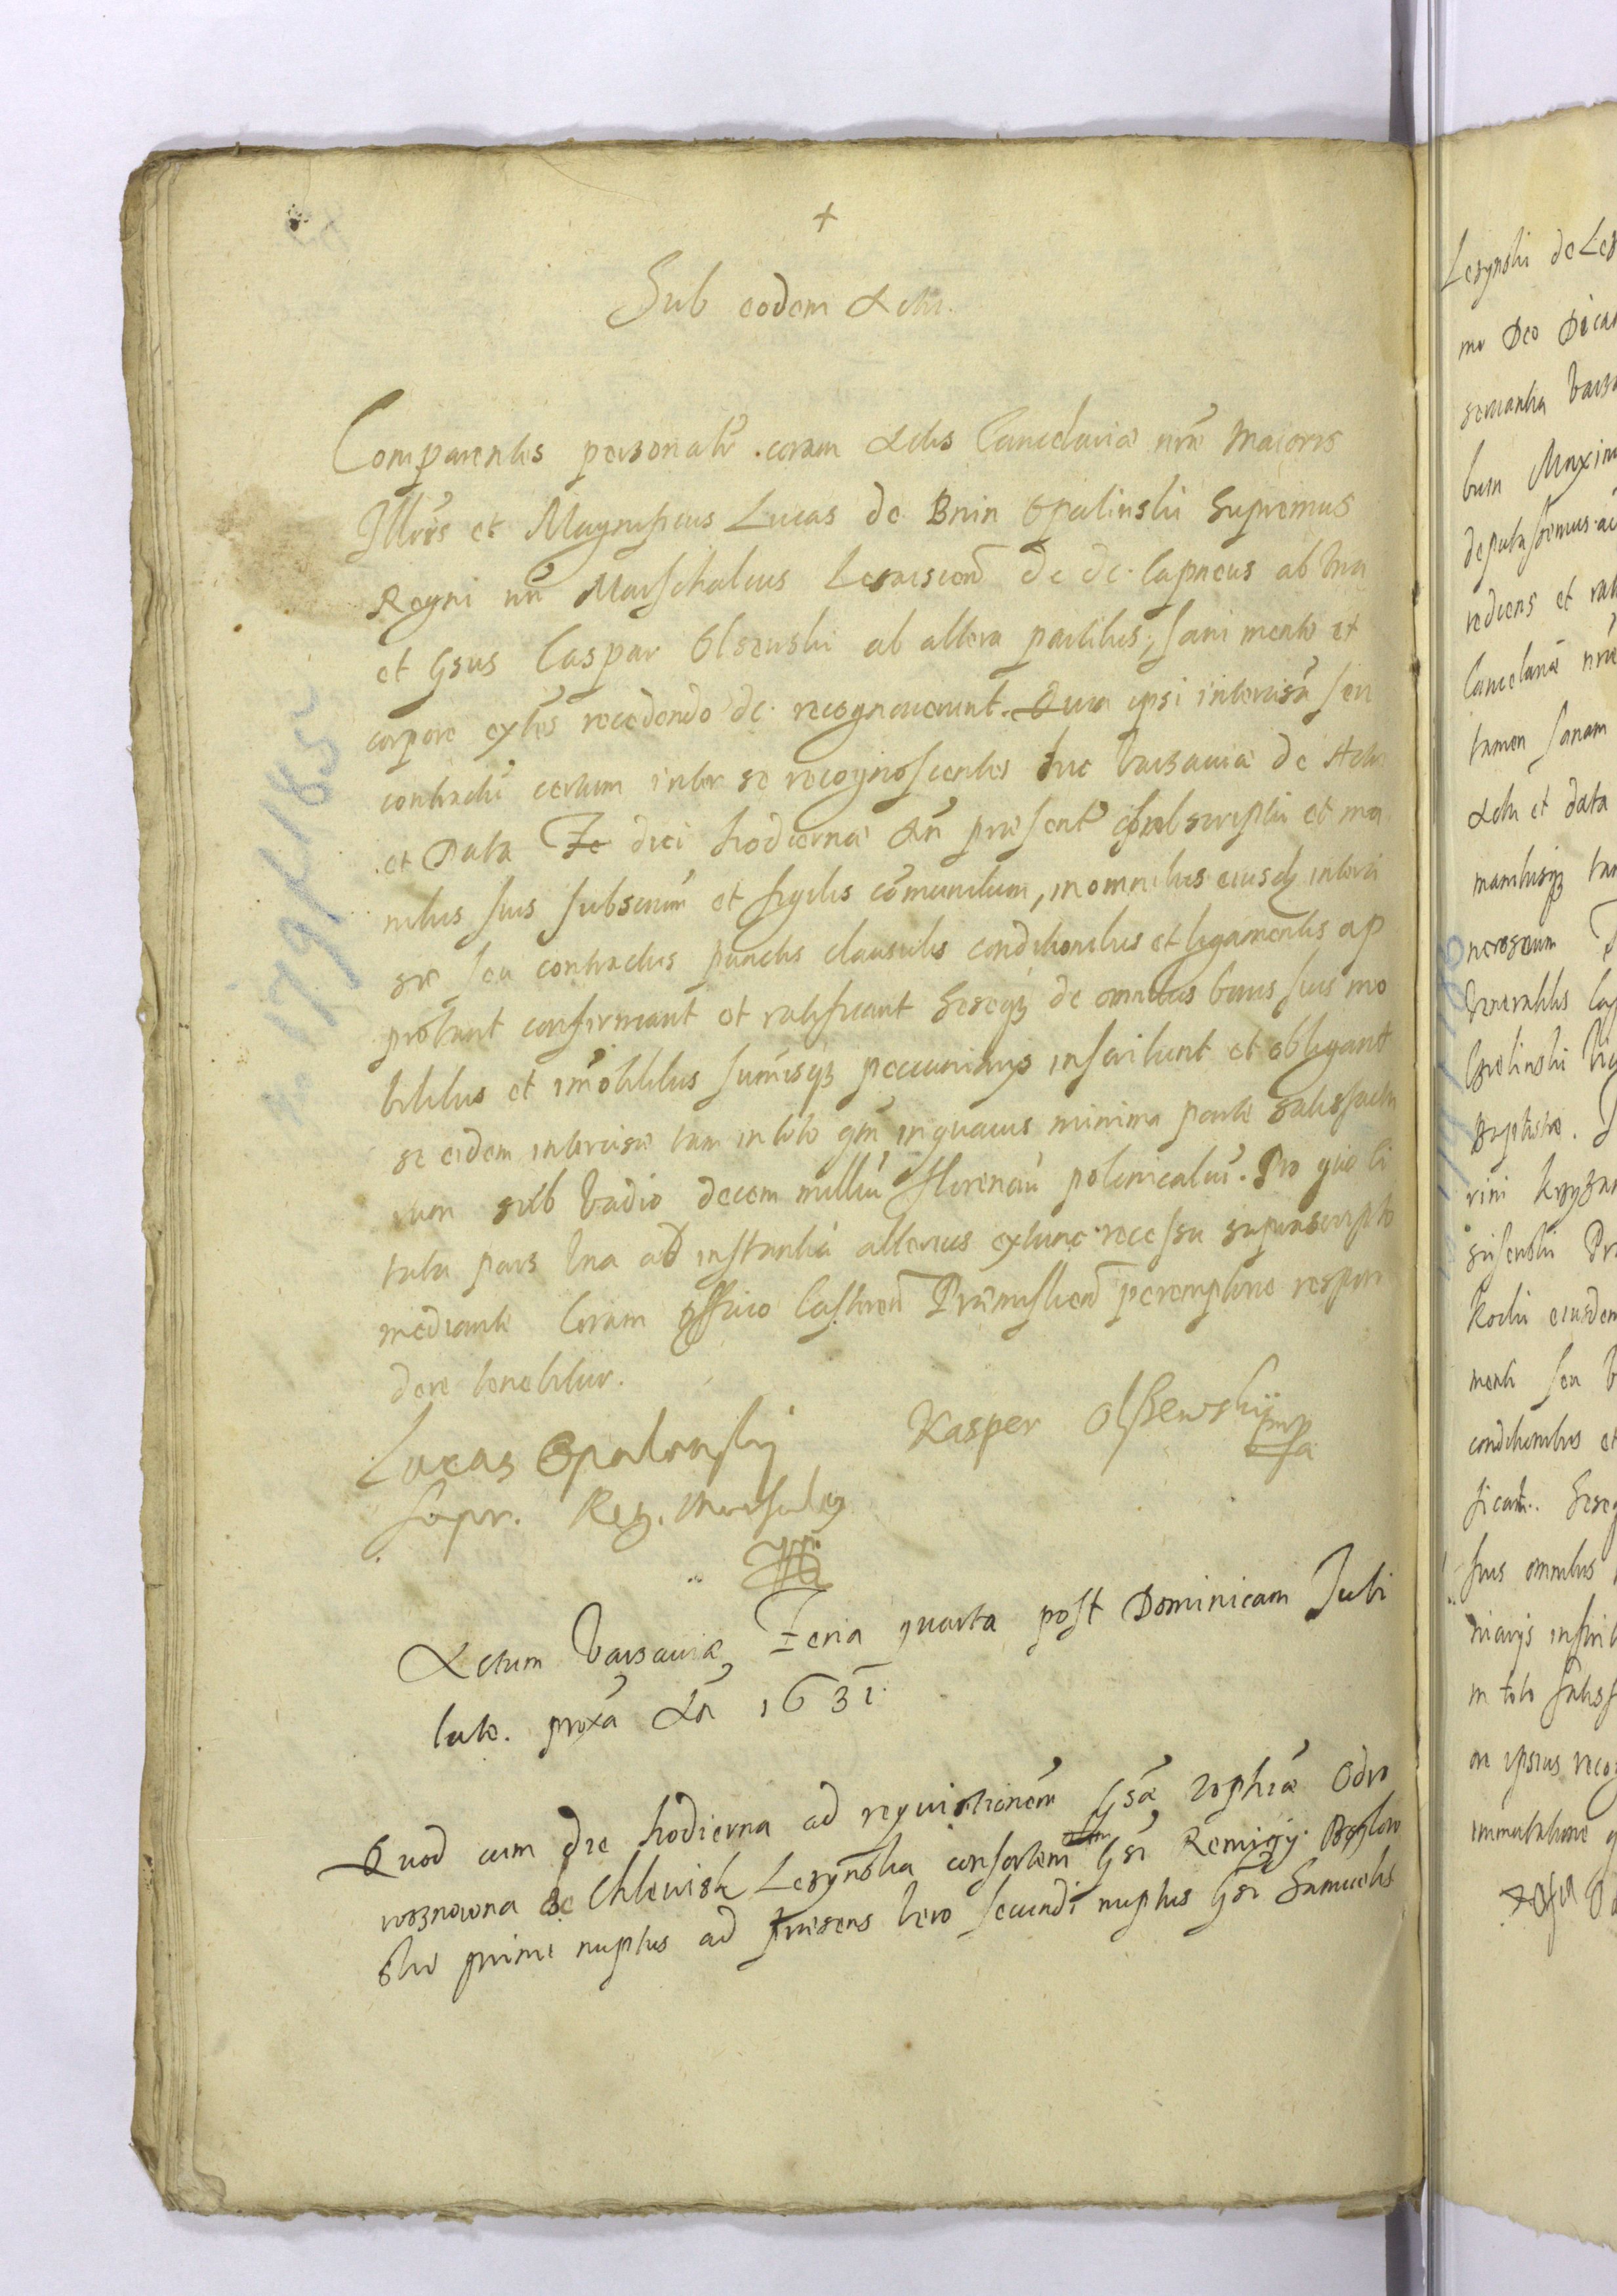 +
Sub eodem Actu.
Comparentes personalr coram Actis Cancelariæ nræ Maioris
Illris et Magnificus Lucas de Bnin Opalinski Supremus
Regni nri Marschalcus Lezaiscen de dc. Capneus ab Una
et Gsus Caspar Olsewski ab altera partibus, sani mente et
corpore extes recedendo dc. recognoverunt. Quia ipsi intercisã seu
contractũ certum inter se recognoscentes hic Varsaviæ de Actu
et Data Fe diei hodiernæ An præsent subscriptũ et ma
nibus suis subscrim et sigilis cõmunitum, in omnibus eiusdq interci
sæ seu contractus punctis clausulis conditionibus et ligamentis ap
probant confirmant et ratificant Seseqz de omnibus bonis suis mo
bilibus et imobilibus sumisqz pecuniarys inscribunt et obligant
se eidem intercisæ tam in toto qm in quavis minima parte satisfactu
rum sub Vadio decem milliũ florenorũ polonicaliũ. Pro quo ci
tata pars Una ad instantiã alterius extunc recessu suprascripto
mediante Coram officio Castren Præmislien peremptorie respon
dere tenebitur.
Lucas Opalinskij Kasper Olszewskij mpa
Supr. Reg. Marsalcg
Actum Varsaviæ Feria quarta post Dominicam Jubi
late. proxa Aõ 1631
Quod cum die hodierna ad requisitionem Gsæ Zophiæ Odro
wozowna de Chlewisk Lezynska consortem Gsi Remigij
ski primi nuptus ad præsens vero secundi nuptus Gsi Samuelis
179/185
Lezynski de Lez
mo Deo Dica
servantia Varsa
bum Maxim
deputassemus ac
rediens et rat
Cancelariæ nræ
tamen sanam
Actu et data
manibusqz
nerosum
Venerabilis Cas
Opelinski
Baptistæ.
rini
Kochi eiusdem
menti seu
conditionibus et
ficant. Seseq
suis omnibus
niarijs inscrib
in toto satisf
one ipsius recog
immutatione